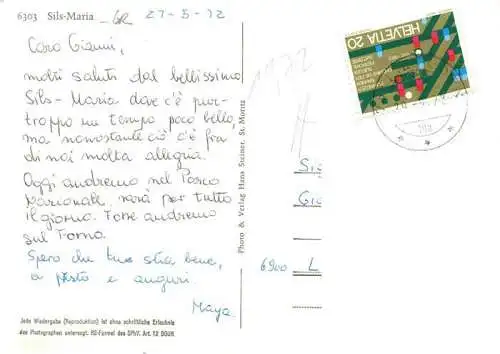 6303 Sils-Maria GR 27-5-72
Caro Gianni,
molti saluti dal bellissimo
Sils-Maria dove c'è pur-
troppo un tempo poco bello,
ma nonostante ciò c'è fra
di noi molta allegria.
Oggi andremo nel Parco
Nazionale, sarà per tutto
il giorno. Forse andremo
sul Forno.
Spero che tuo stia bene,
a presto e auguri.
Maya
Jede Wiedergabe (Reproduktion) ist ohne schriftliche Erlaubnis
des Photographen untersagt. HD-Formel des SPhV. Art. 13 BGUR
Photo & Verlag Hans Steiner, St. Moritz
1972
HELVETIA 20
Sig
Gi
6900 L